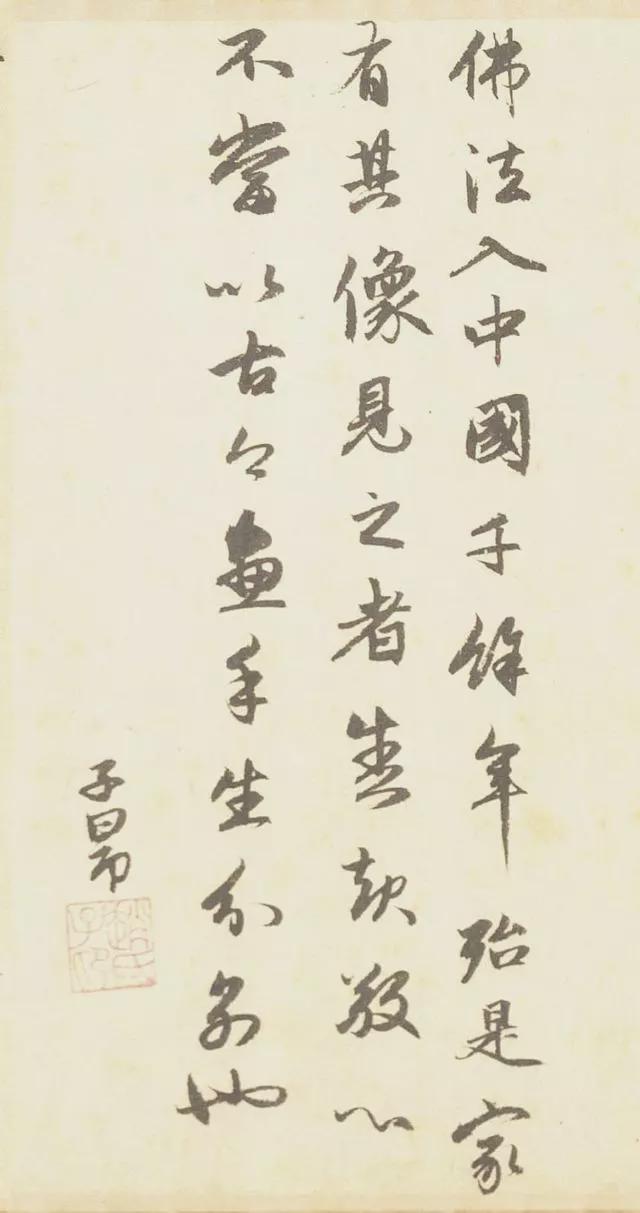 佛法入中國千餘年殆是家
有其像見之者敬心
不當以古今畫手生分別也
子昂
趙氏子昂